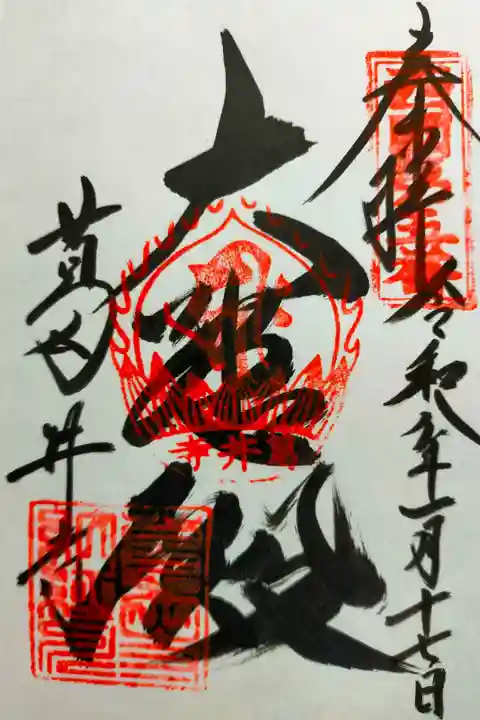 奉拝
令和六年十一月十七日
大悲殿
寺井葛
葛井寺